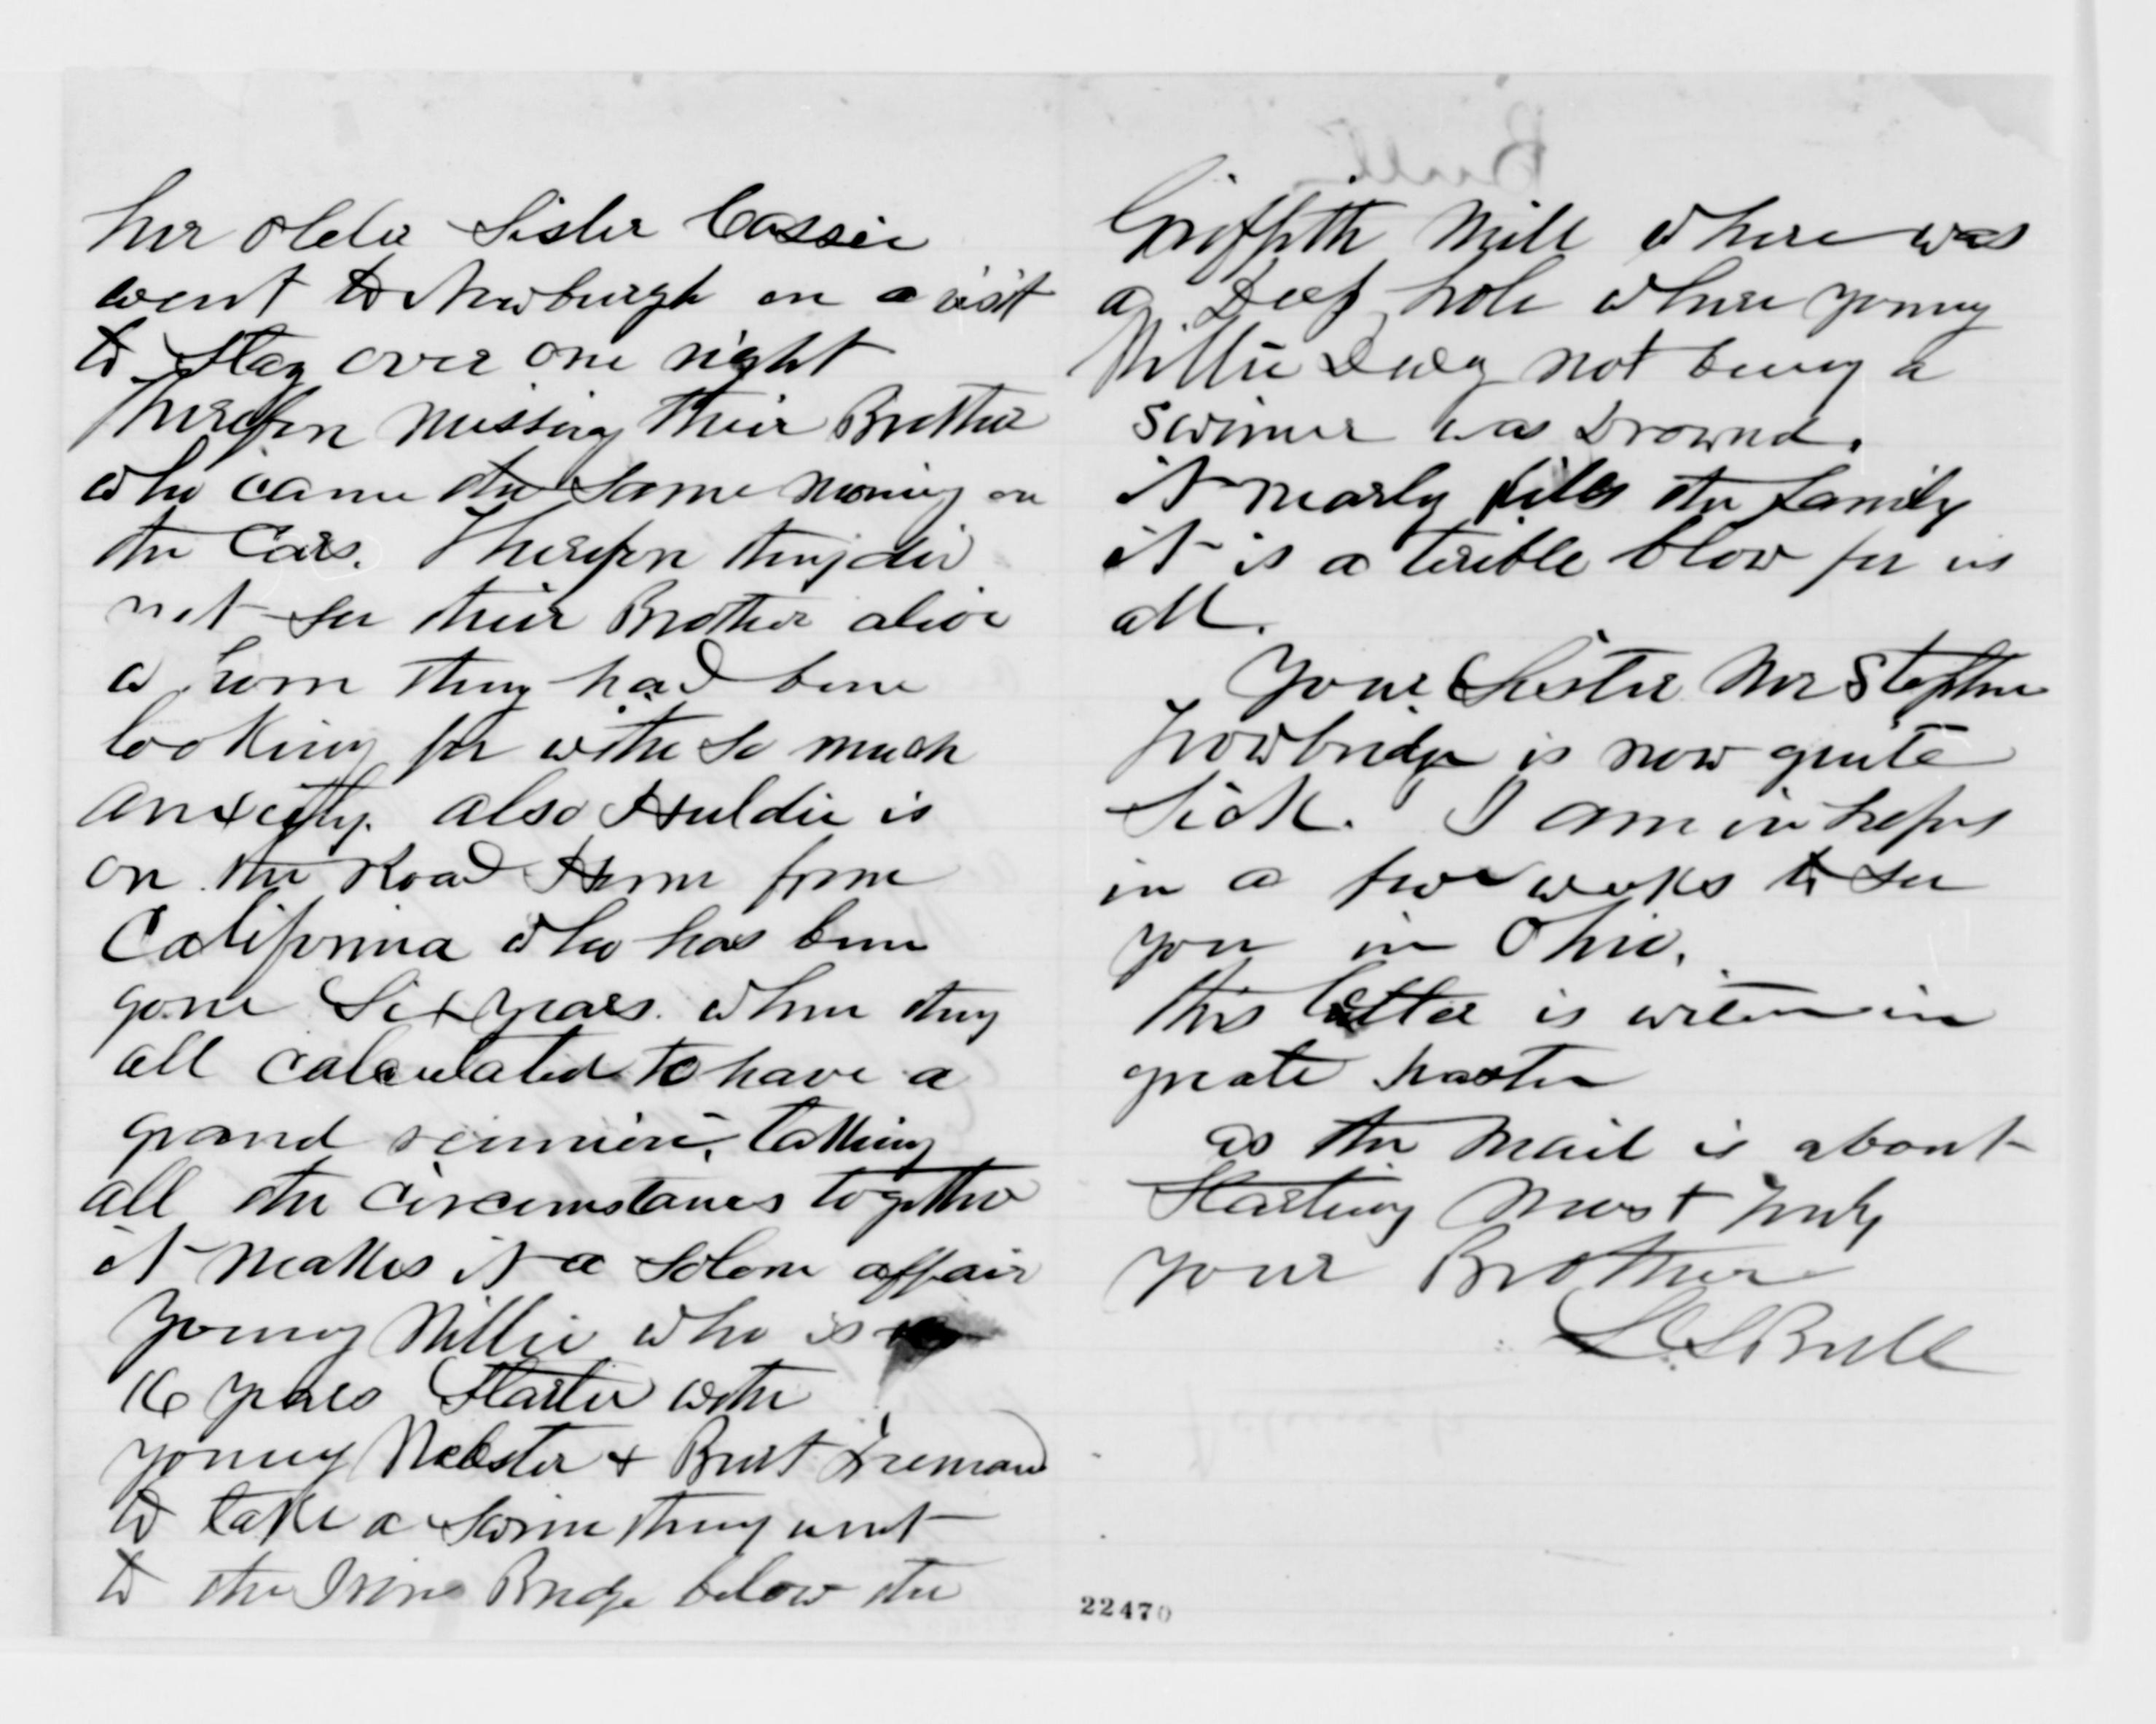 her older Sister Cassie
went to Newburgh on a visit
to Stay over one night
Therefore missing their Brother
who came the same morning on
the Cars. Therefore they did
not see their Brother alive
whom they had been
looking for with so much
anxiety. also Huldie is
on the Road Home from
California who has been
gone Six years. when they
all calculated to have a
grand reunion, takking
all the circumstances together
it makes it a solem affair
young Willie who is
16 years Started with
young Webster + Burt Freeman
to take a swim they went
to the Iron Bridge below the
Griffith Mill where was
a Deep hole where young
Willie not being a
swimer was Drowned.
it nearly kills the family
it is a terible blow for us
all.
Your Sister Mrs Stephen
Trowbridge is now quite
Sick. I am in hopes
in a few weeks to see
you in Ohio.
this letter is writen in
greate haste
as the mail is about
Starting Most Truly
your Brother
L. S. Bull
22470
Bull